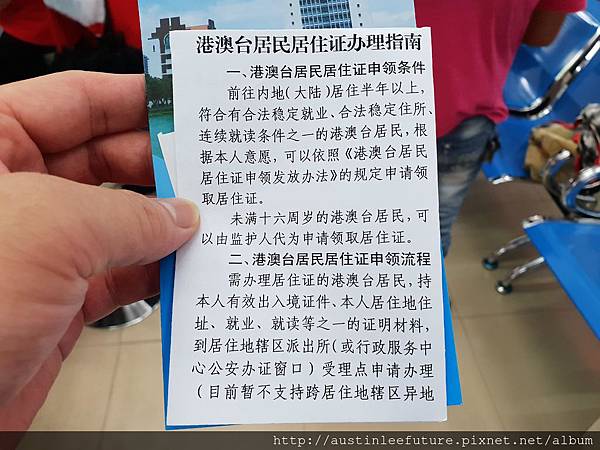 港澳台居民居住证办理指南
一、港澳台居民居住证申领条件
前往内地(大陆)居住半年以上,
符合有合法稳定就业、合法稳定住所、
连续就读条件之一的港澳台居民,根
据本人意愿,可以依照《港澳台居民
居住证申领发放办法》的规定申请领
取居住证。
未满十六周岁的港澳台居民,可
以由监护人代为申请领取居住证。
二、港澳台居民居住证申领流程
需办理居住证的港澳台居民,持
本人有效出入境证件、本人居住地住
址、就业、就读等之一的证明材料,
到居住地辖区派出所(或行政服务中
心公安办证窗口)受理点申请办理
(目前暂不支持跨居住地辖区异地
http://austinleefuture.pixnet.net/album